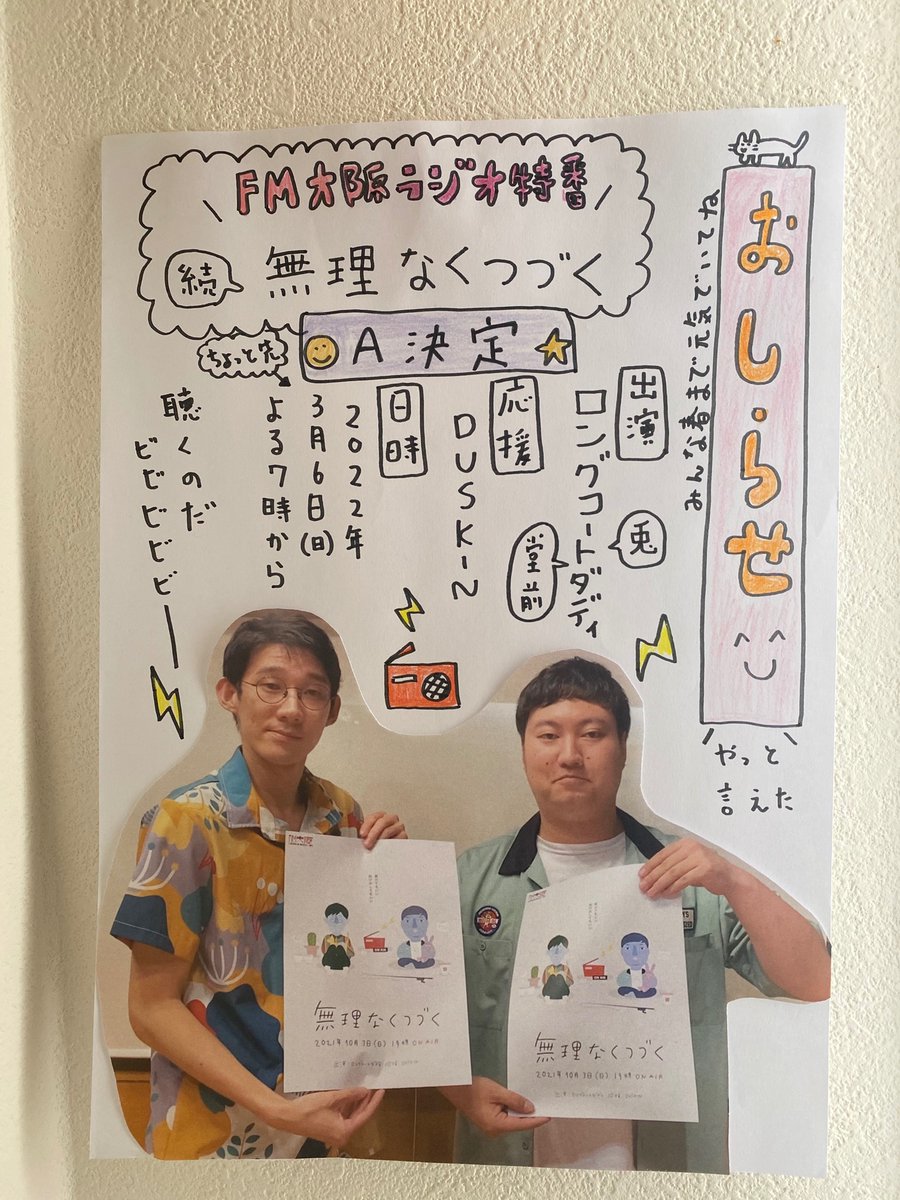 おしらせ
みんな春まで元気でいてね
やっと
言えた
FM大阪ラジオ特番
続
無理なくつづく
A決定
ちょっと先
出演
ロングコートダディ
兎
堂前
応援
DUSKIN
日時
2022年
3月6日(日)
よる7時から
聴くのだ
ビビビビビー
無理なくつづく
2021年10月3日(日) 19時 ON AIR
無理なくつづく
2021年10月3日(日) 19時 ON AIR